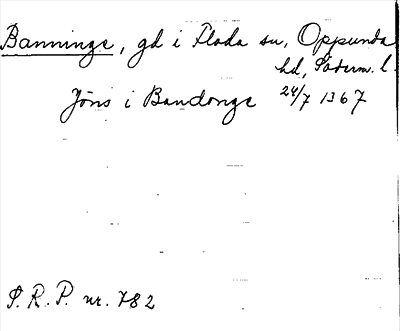 Banninge, gd i Floda sn, Oppunda
hd, Söderm. l.
Jöns i Bandonge 24/7 1367
S.R.P. nr. 782